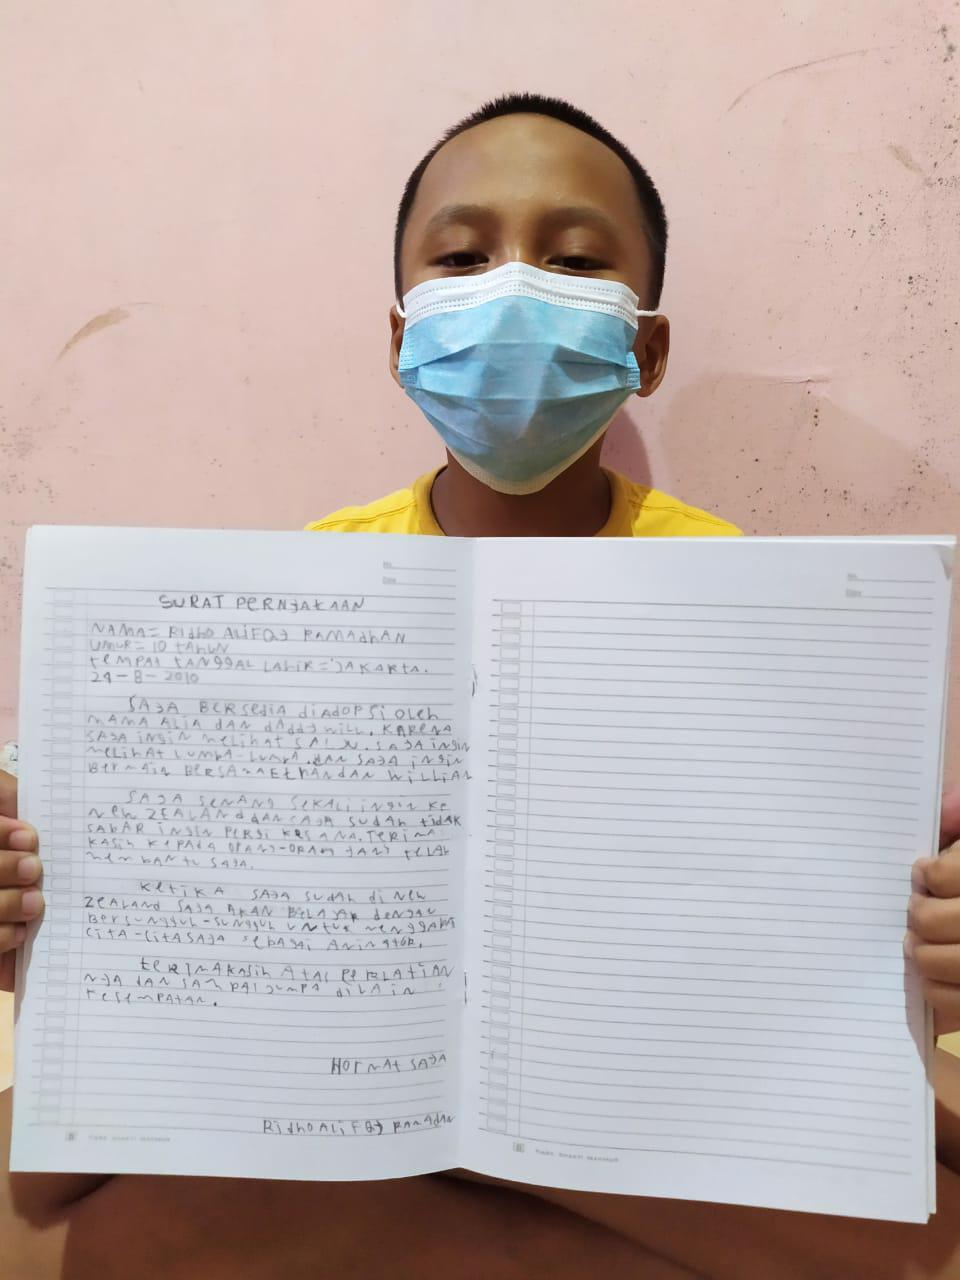 No.
Date
SURAT PERNJAKAAN
NAMA= RidhO ALiFQJ RAMAdhAN
UMUR= 10 tAhUN
teMPAt tANGGAL LAhiR = JAKARTA.
24-8-2010
SAJA BERSEdiA diAdOPSi OLeh
MAMA ALiA dAN dAddy WiLL. KAReNA
SAJA iNgiN MeLihAt SALJU. SAJA iNgiN
MeLihAt LUMbA-LUMbA. dAN SAJA iNgiN
BerMAiN BERSAMA EthAN dAN WiLLiAN
SAJA SeNANg SeKALi iNgiN Ke
NeW ZEALANd dAN SAJA SUdAh tidAK
SABAR iNgiN PeRgi KeSANA. TeRiMA
KASih KePAdA ORANg-ORANg JANg teLAh
MeMBANtU SAJA.
KetiKA SAJA SUdAh di NeW
ZEALANd SAJA AKAN BeLAJAR deNgAN
BerSUNggUh-SUNggUh UNtUK
CitA-CitA SAJA SeBAgAi
teRiMAKASih AtAS
NJA dAN SAMPAi JUMPA di LAiN
KeSeMPAtAN.
HORMAt SAJA
RidhO ALiFQJ RAMAdAN
No.
Date